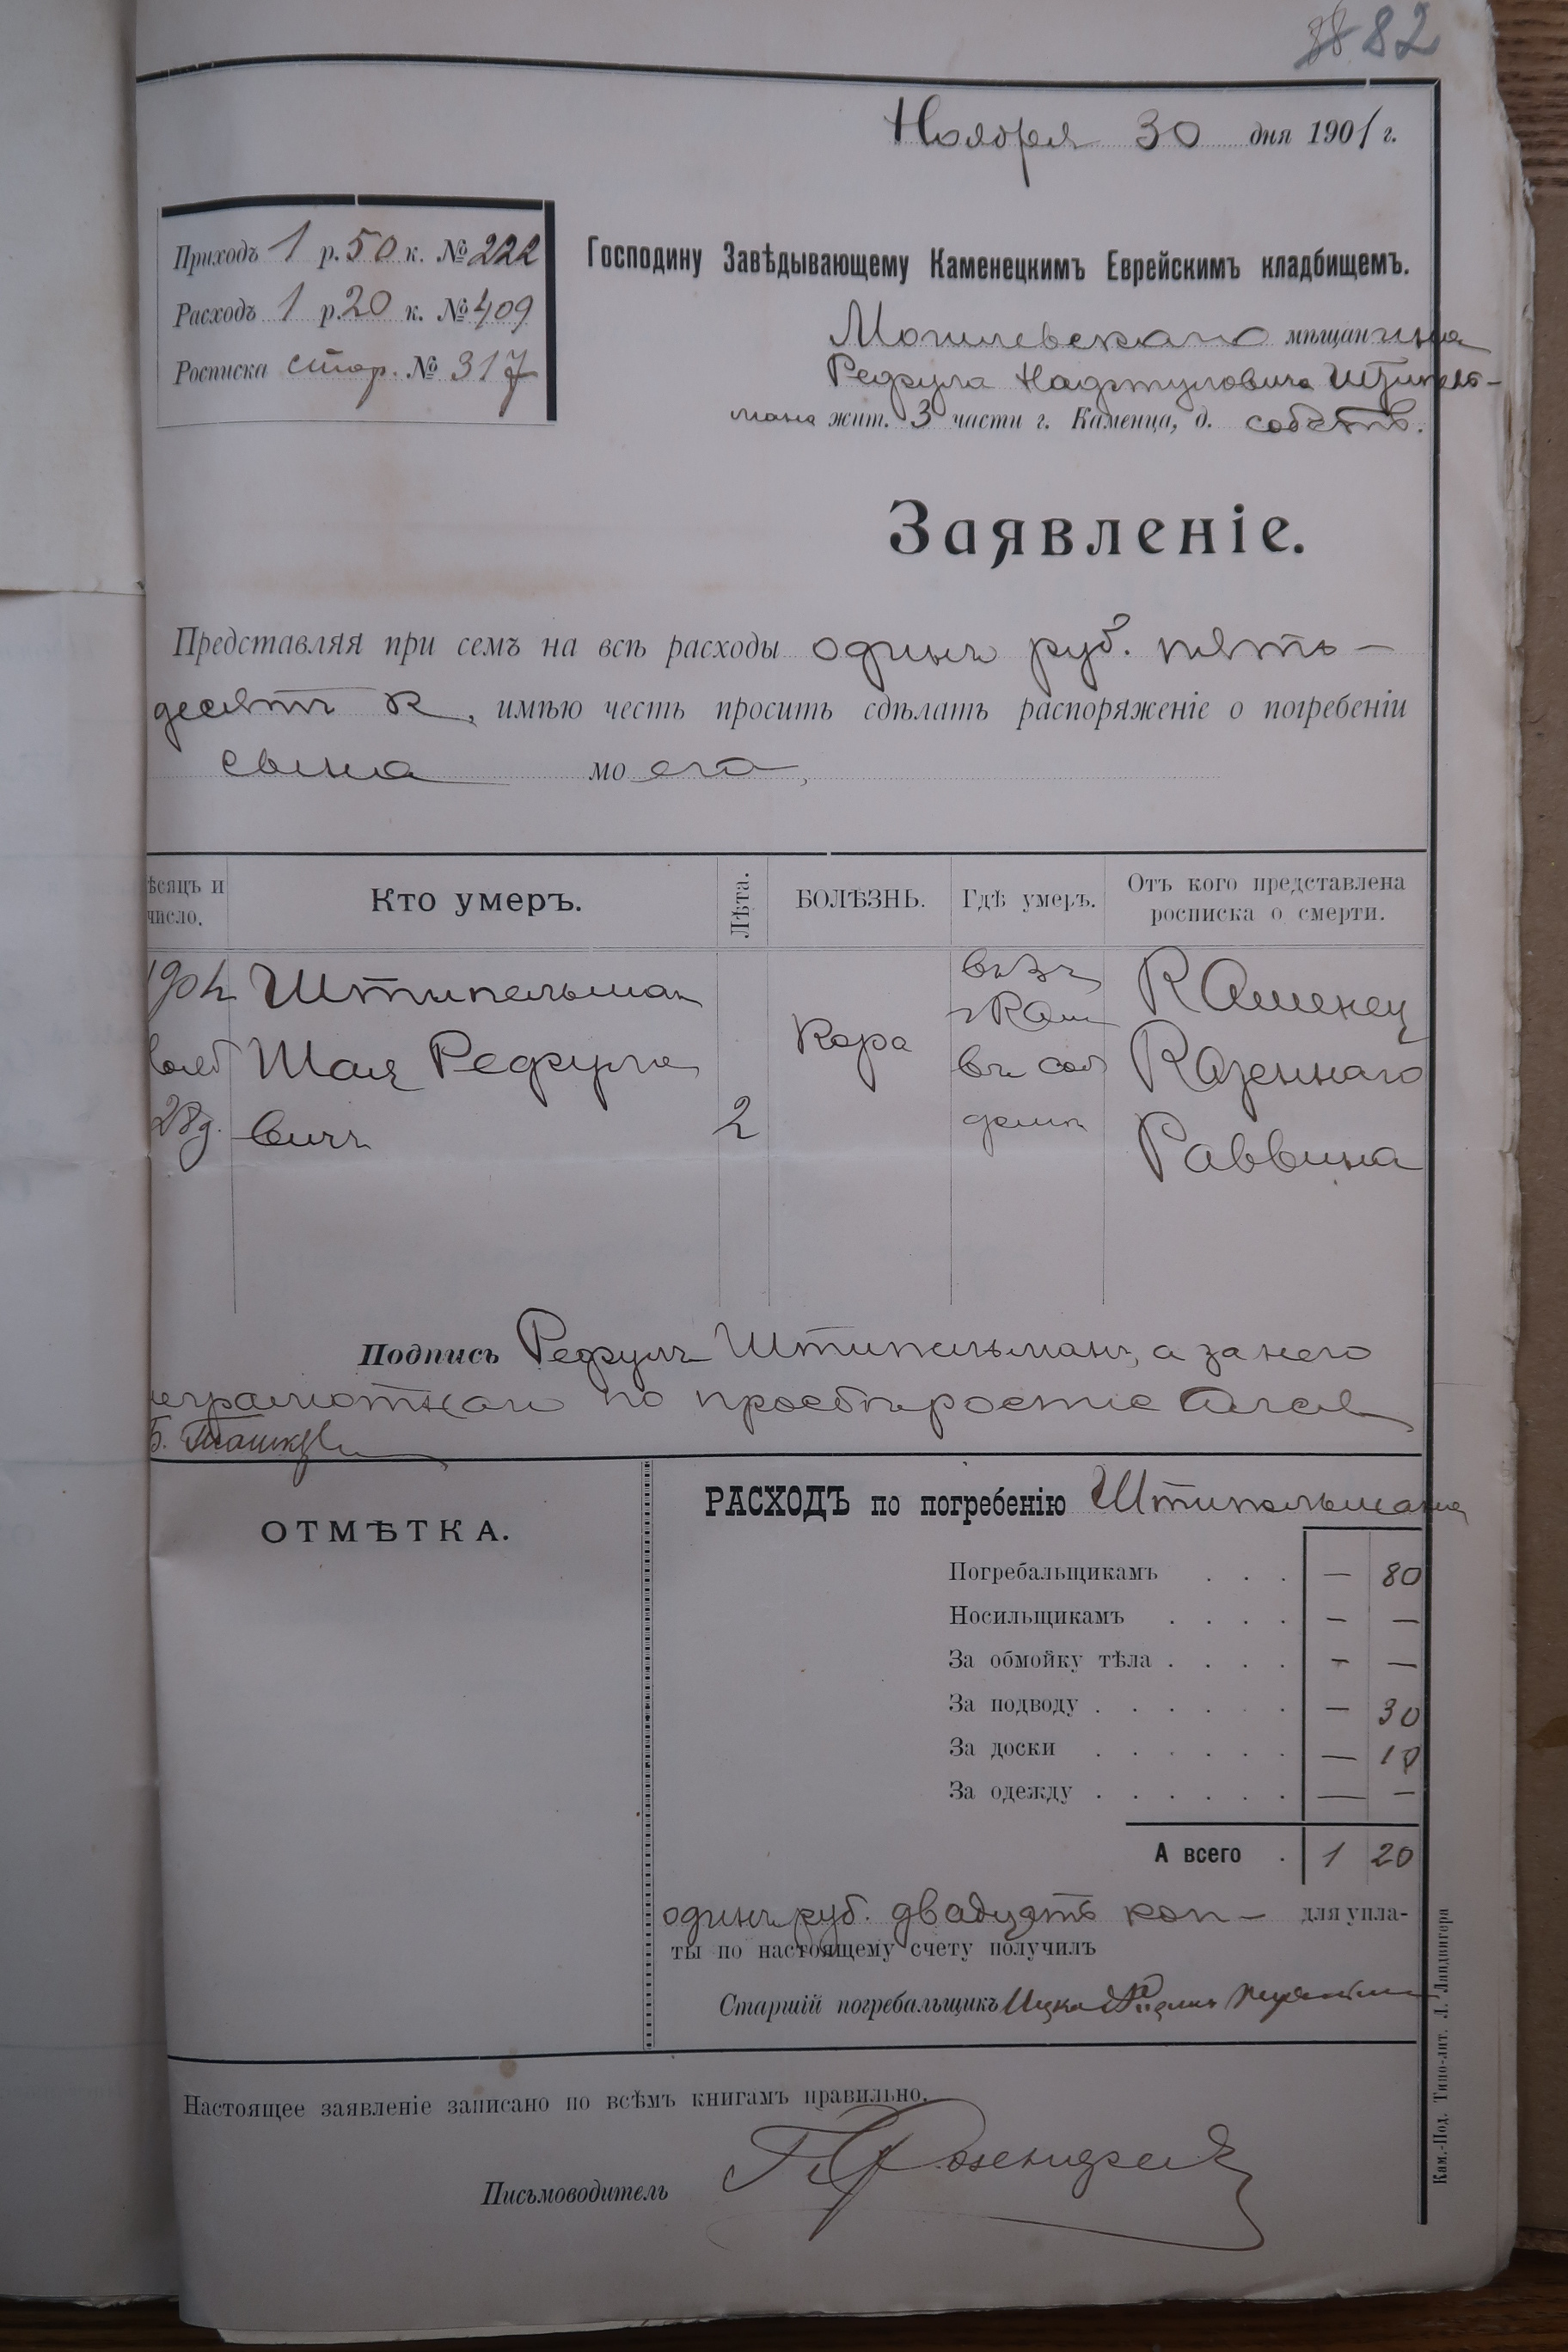 82
Ноября 30 дня 1901 г.
Приходъ 1 р. 50 к. № 222
Расходъ 1 р. 20 к. № 409
Росписка стар. № 317
Господину Завѣдывающему Каменецкимъ Еврейскимъ кладбищемъ.
Могилевскаго мѣщанина
Рефула Нафтуловича Штипель-
мана жит. 3 части г. Каменца, д. собств.
Заявленіе.
Представляя при семъ на всѣ расходы одинъ руб. пять-
десятъ к., имѣю честь просить сдѣлать распоряженіе о погребеніи
сына моего,
ѣсяцъ и число.
Кто умеръ.
Лѣта.
БОЛѢЗНЬ.
Гдѣ умеръ.
Отъ кого представлена росписка о смерти.
Штипельман
Шая Рефуле
вичъ
28д.
2
Кора
въ 3 ч
г Кам
въ соб
домѣ
Каменец
Казеннаго
Раввина
Подпись Рефулъ Штипельманъ, а за него
неграмотнаго по
РАСХОДЪ по погребенію Штипельмана
ОТМѢТКА.
Погребальщикамъ . . . — 80
Носильщикамъ . . . . — —
За обмойку тѣла . . . . — —
За подводу . . . . . . — 30
За доски . . . . . . — 10
За одежду . . . . . . — —
А всего . 1 20
одинъ руб. двадцять коп — для упла-
ты по настоящему счету получилъ
Старшій погребальщикъ Ицко
Настоящее заявленіе записано по всѣмъ книгамъ правильно.
Письмоводитель
Кам.-Под. Типо-лит. Л. Ландвигера